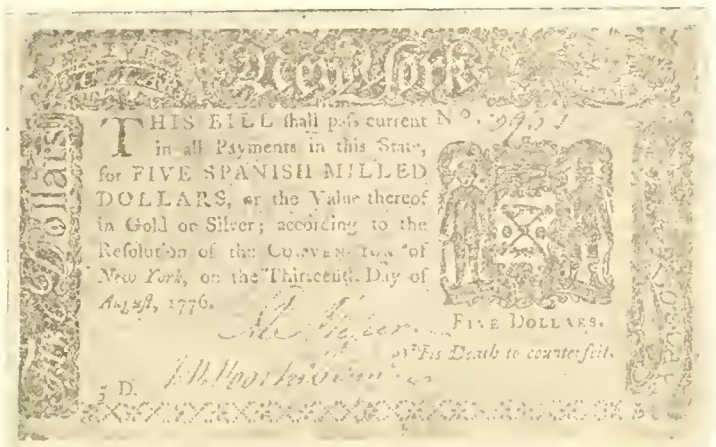 New-York
Five Dollars
THIS BILL ſhall paſs current
in all Payments in this State,
for FIVE SPANISH MILLED
DOLLARS, or the Value thereof
in Gold or Silver; according to the
Reſolution of the CONVENTION of
New York, on the Thirteenth Day of
Auguſt, 1776.
No.
FIVE DOLLARS.
'Tis Death to counterfeit.
5 D.